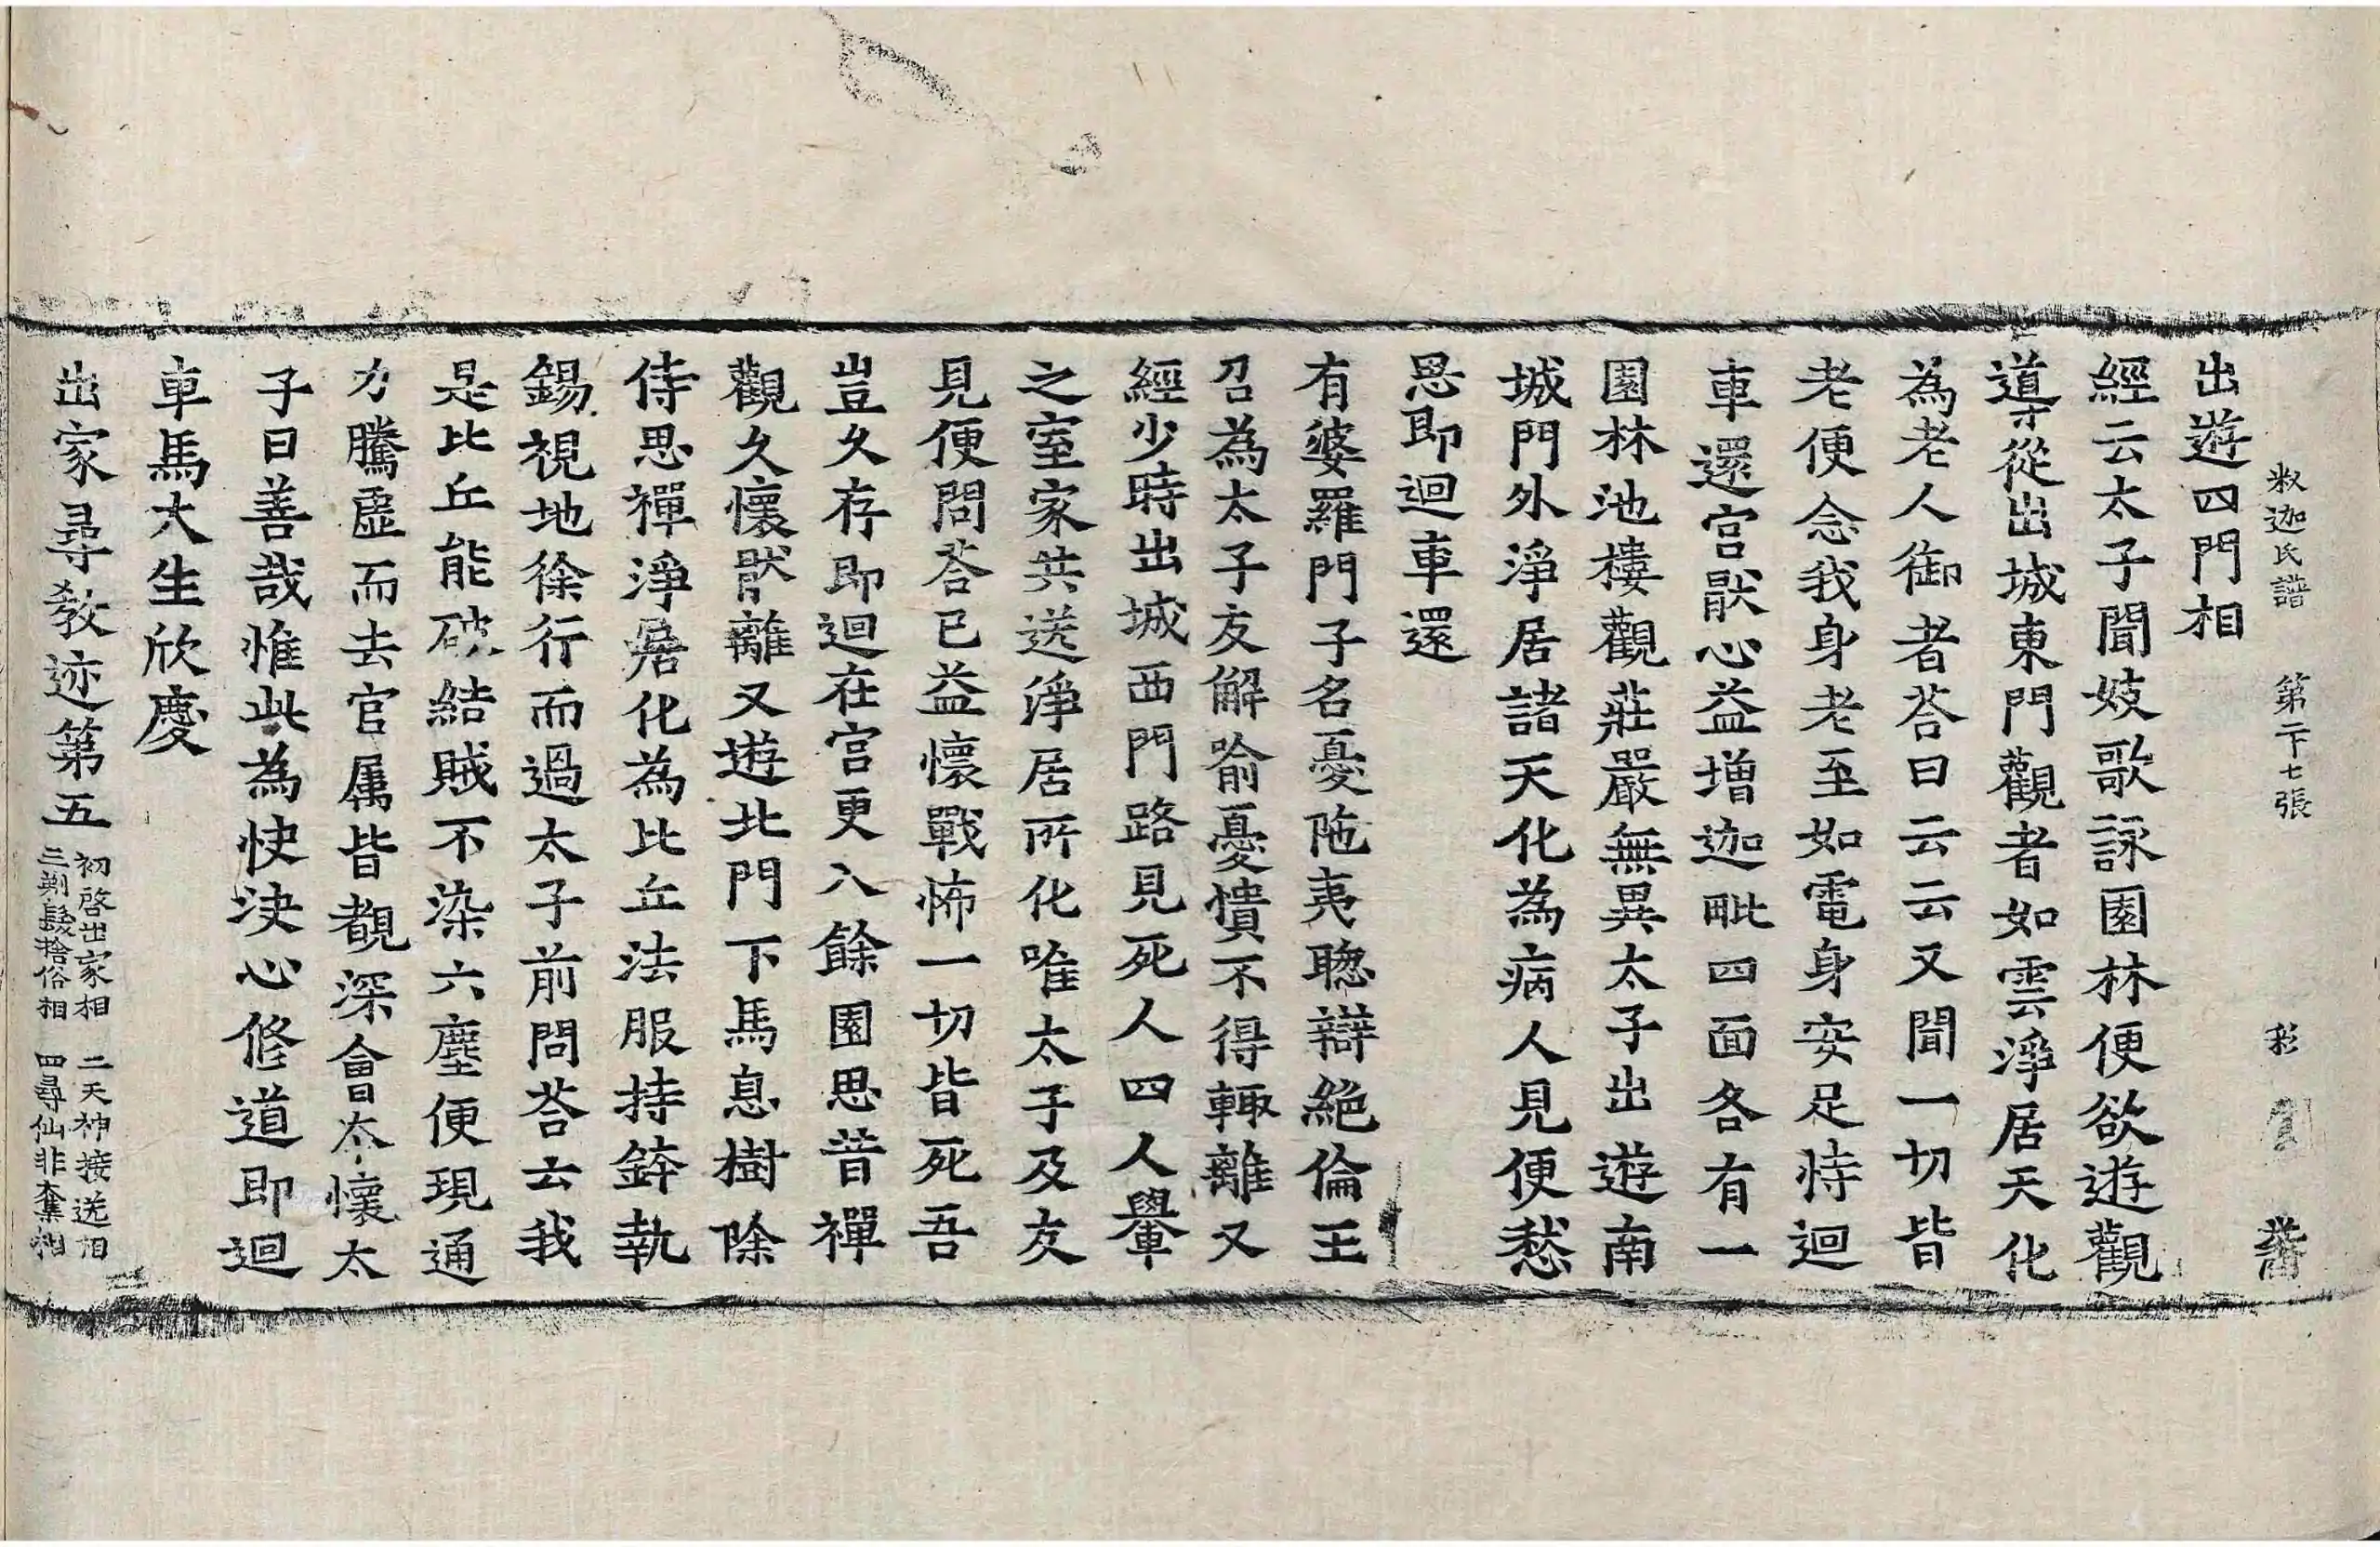 釈迦氏譜 第二十七張 彩
出遊四門相
經云太子聞妓歌詠園林便欲遊觀
導從出城東門觀者如雲淨居天化
為老人御者荅曰云云又聞一切皆
老便念我身老至如電身安足恃迴
車還宫猒心益增迦毗四面各有一
園林池樓觀莊嚴無異太子出遊南
城門外淨居諸天化為病人見便愁
思即迴車還
有婆羅門子名憂陁夷聦辯絶倫王
召為太子友解喻憂憒不得輙離又
經少時出城西門路見死人四人轝
之室家共送淨居所化唯太子及友
見便問荅已益懷戰怖一切皆死吾
豈久存即迴在宫更入餘園思昔禪
觀久懷猒離又遊北門下馬息樹除
侍思禪淨居化為比丘法服持鉢執
錫視地徐行而過太子前問荅云我
是比丘能破結賊不染六塵便現通
力騰虛而去官属皆覩深會本懷太
子曰善哉惟此為快決心修道即迴
車馬大生欣慶
出家尋教迹第五
初啓出家相 二天神接送相
三剃髮捨俗相 四尋仙非奪相